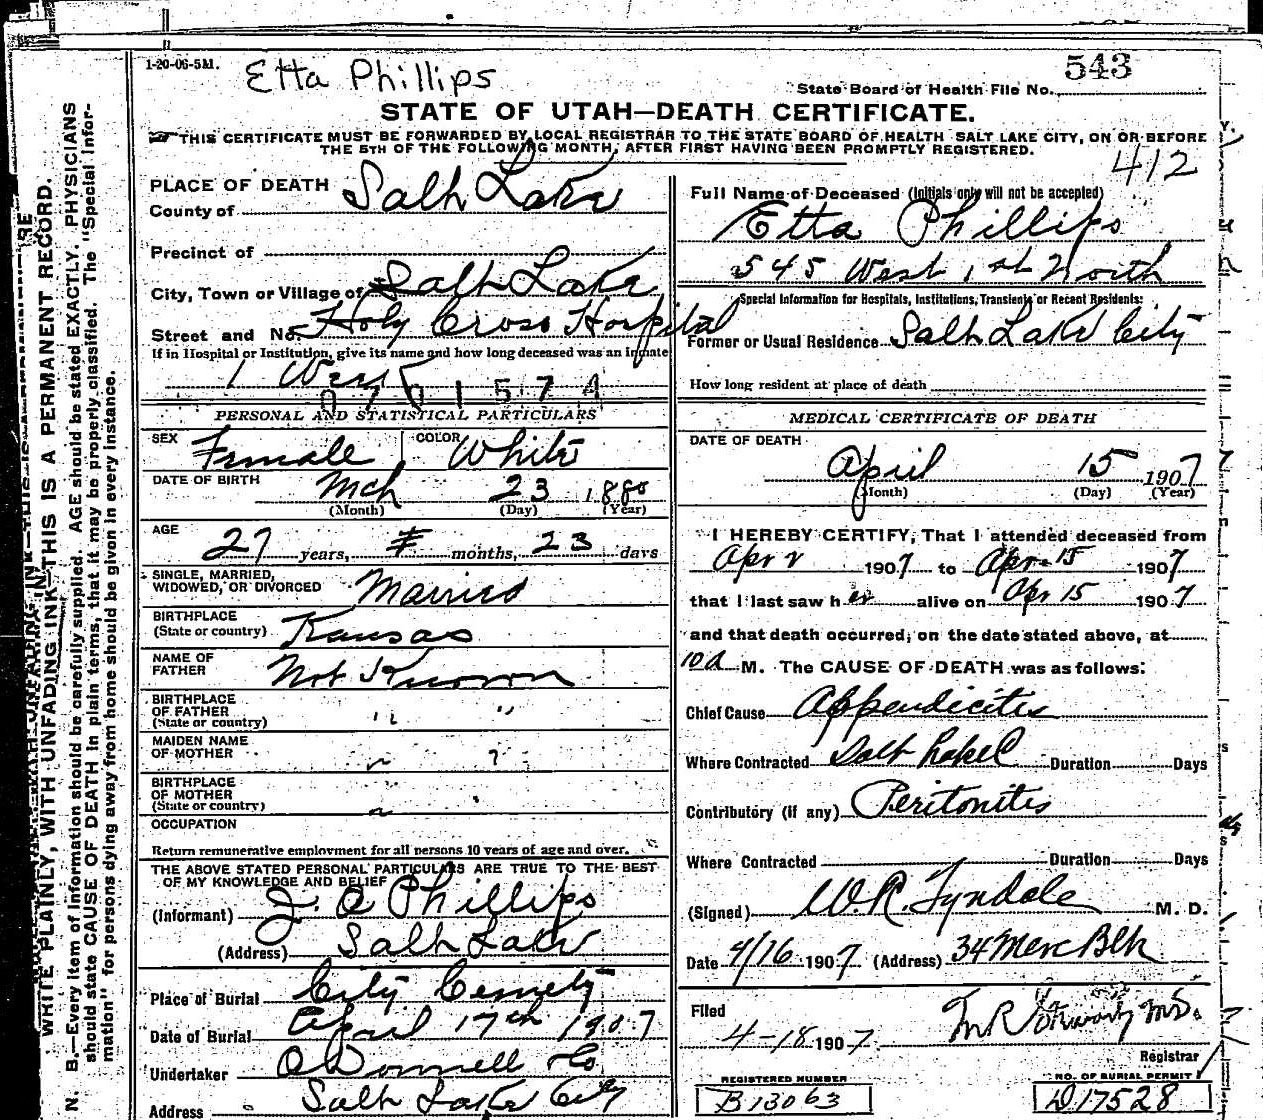 1-20-06-5M.
Etta Phillips
543
State Board of Health File No.
STATE OF UTAH—DEATH CERTIFICATE.
THIS CERTIFICATE MUST BE FORWARDED BY LOCAL REGISTRAR TO THE STATE BOARD OF HEALTH SALT LAKE CITY, ON OR BEFORE
THE 5TH OF THE FOLLOWING MONTH, AFTER FIRST HAVING BEEN PROMPTLY REGISTERED.
412
PLACE OF DEATH
County of Salt Lake
Precinct of
City, Town or Village of Salt Lake
Street and No. Holy Cross Hospital
If in Hospital or Institution, give its name and how long deceased was an inmate
1 Week
0701574
PERSONAL AND STATISTICAL PARTICULARS
SEX Female COLOR White
DATE OF BIRTH Mch 23 1880
(Month) (Day) (Year)
AGE 27 years, months, 23 days
SINGLE, MARRIED,
WIDOWED, OR DIVORCED Married
BIRTHPLACE
(State or country) Kansas
NAME OF
FATHER Not Known
BIRTHPLACE
OF FATHER
(State or country) " "
MAIDEN NAME
OF MOTHER
BIRTHPLACE
OF MOTHER
(State or country)
OCCUPATION
Return remunerative employment for all persons 10 years of age and over.
THE ABOVE STATED PERSONAL PARTICULARS ARE TRUE TO THE BEST
OF MY KNOWLEDGE AND BELIEF
(Informant) J. A Phillips
(Address) Salt Lake
Place of Burial City Cemety
Date of Burial April 17th 1907
Undertaker O'Donnell & Co
Address Salt Lake City
Full Name of Deceased (Initials only will not be accepted)
Etta Phillips
545 West 1st North
Special Information for Hospitals, Institutions, Transients or Recent Residents:
Former or Usual Residence Salt Lake City
How long resident at place of death
MEDICAL CERTIFICATE OF DEATH
DATE OF DEATH
April 15 1907
(Month) (Day) (Year)
I HEREBY CERTIFY, That I attended deceased from
Apr 2 1907 to Apr 15 1907
that I last saw her alive on Apr 15 1907
and that death occurred, on the date stated above, at
10 A M. The CAUSE OF DEATH was as follows:
Chief Cause Appendicitis
Where Contracted Salt Lake C Duration Days
Contributory (if any) Peritonitis
Where Contracted Duration Days
(Signed) W.R. Tyndale M. D.
Date 4/16 1907 (Address) 34 Merc Blk
Filed
4-18 1907 M R Stewart MD.
Registrar
REGISTERED NUMBER
B13063
NO. OF BURIAL PERMIT
D17528
WRITE PLAINLY, WITH UNFADING INK—THIS IS A PERMANENT RECORD.
N. B.—Every item of information should be carefully supplied. AGE should be stated EXACTLY. PHYSICIANS
should state CAUSE OF DEATH in plain terms, that it may be properly classified. The "Special Infor-
mation" for persons dying away from home should be given in every instance.